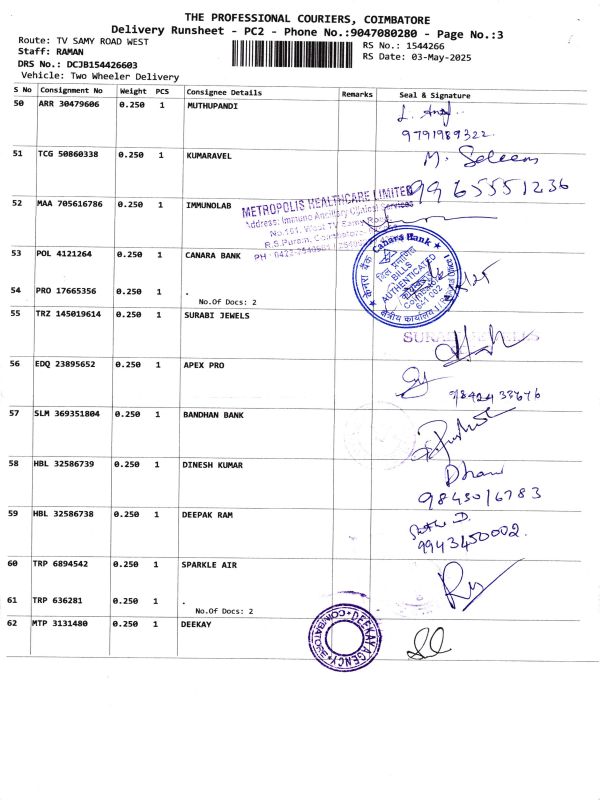 THE PROFESSIONAL COURIERS, COIMBATORE
Delivery Runsheet - PC2 - Phone No.:9047080280 - Page No.:3
Route: TV SAMY ROAD WEST
RS No.: 1544266
Staff: RAMAN
RS Date: 03-May-2025
DRS No.: DCJB154426603
Vehicle: Two Wheeler Delivery
S No Consignment No Weight PCS Consignee Details Remarks Seal & Signature
50 ARR 30479606 0.250 1 MUTHUPANDI
9791989322
51 TCG 50860338 0.250 1 KUMARAVEL
M. Seleem
9965551236
52 MAA 705616786 0.250 1 IMMUNOLAB
METROPOLIS HEALTHCARE LIMITED
Address: Immuno Ancillary Clinical Services
No.101, West TV Samy Road
R.S.Puram, Coimbatore
53 POL 4121264 0.250 1 CANARA BANK
Canara Bank
BILLS
AUTHENTICATED
COIMBATORE
641 002
54 PRO 17665356 0.250 1 .
No.Of Docs: 2
55 TRZ 145019614 0.250 1 SURABI JEWELS
56 EDQ 23895652 0.250 1 APEX PRO
9842433676
57 SLM 369351804 0.250 1 BANDHAN BANK
58 HBL 32586739 0.250 1 DINESH KUMAR
9843016783
59 HBL 32586738 0.250 1 DEEPAK RAM
9943450002
60 TRP 6894542 0.250 1 SPARKLE AIR
61 TRP 636281 0.250 1 .
No.Of Docs: 2
62 MTP 3131480 0.250 1 DEEKAY
DEEKAY AGENCY
COIMBATORE